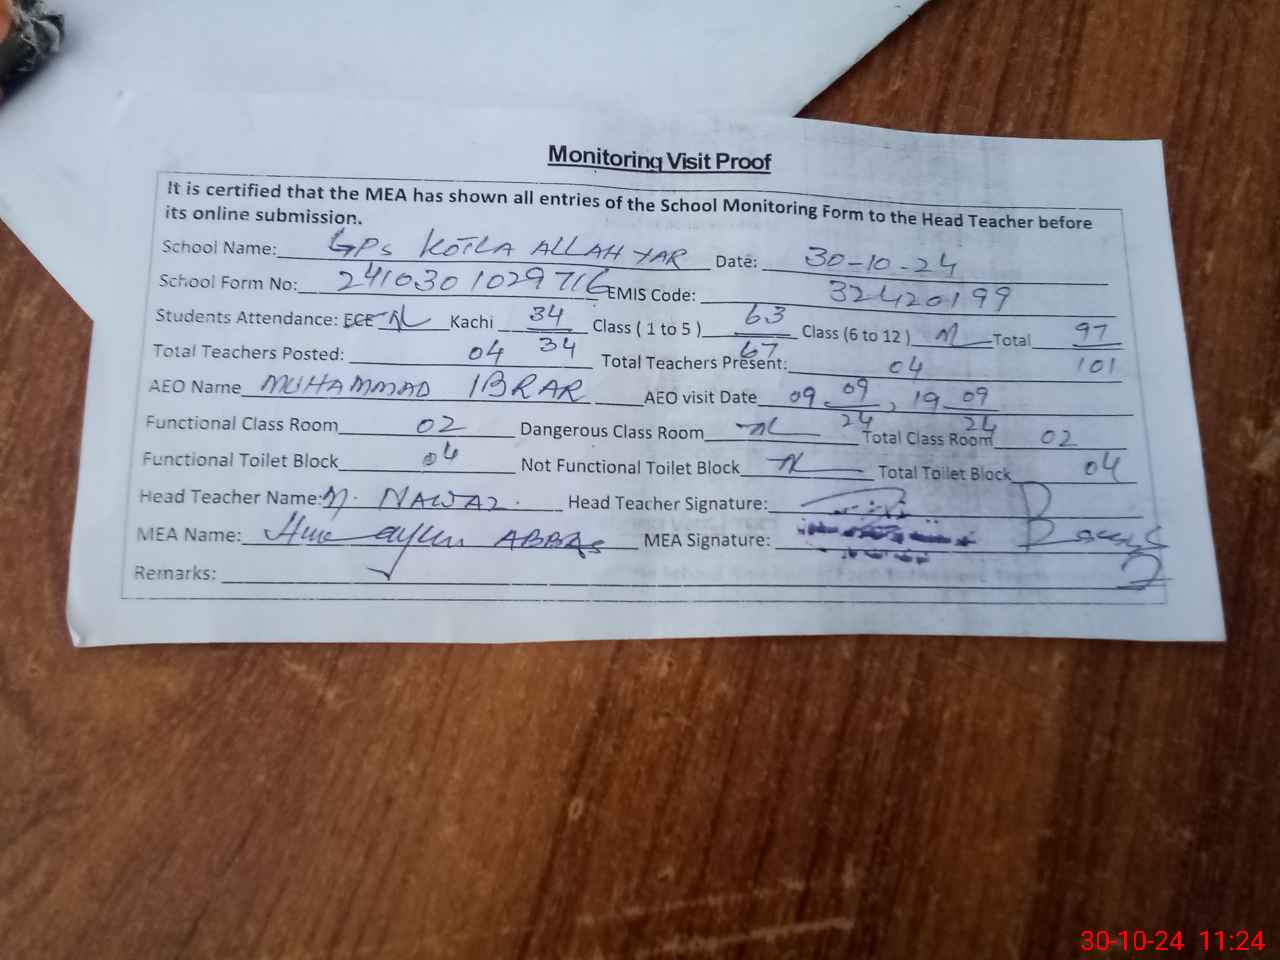 Monitoring Visit Proof
It is certified that the MEA has shown all entries of the School Monitoring Form to the Head Teacher before
its online submission.
School Name: GPS KOTLA ALLAH YAR Date: 30-10-24
School Form No: 2410301029716 EMIS Code: 32420199
Students Attendance: ECE NL Kachi 34/34 Class ( 1 to 5 ) 63/67 Class (6 to 12 ) NL Total 97/101
Total Teachers Posted: 04 Total Teachers Present: 04
AEO Name MUHAMMAD IBRAR AEO visit Date 09-09/24, 19-09/24
Functional Class Room 02 Dangerous Class Room NL Total Class Room 02
Functional Toilet Block 04 Not Functional Toilet Block NL Total Toilet Block 04
Head Teacher Name: M. NAWAZ. Head Teacher Signature:
MEA Name: ABBAS MEA Signature:
Remarks:
30-10-24 11:24